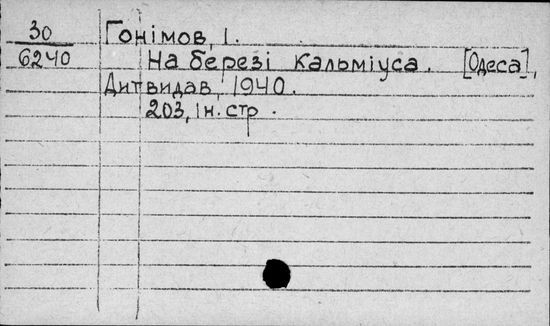 30 Гонімов, І.
6240 На березі Кальміуса. [Одеса],
Дитвидав, 1940.
203, 1 н. стр.